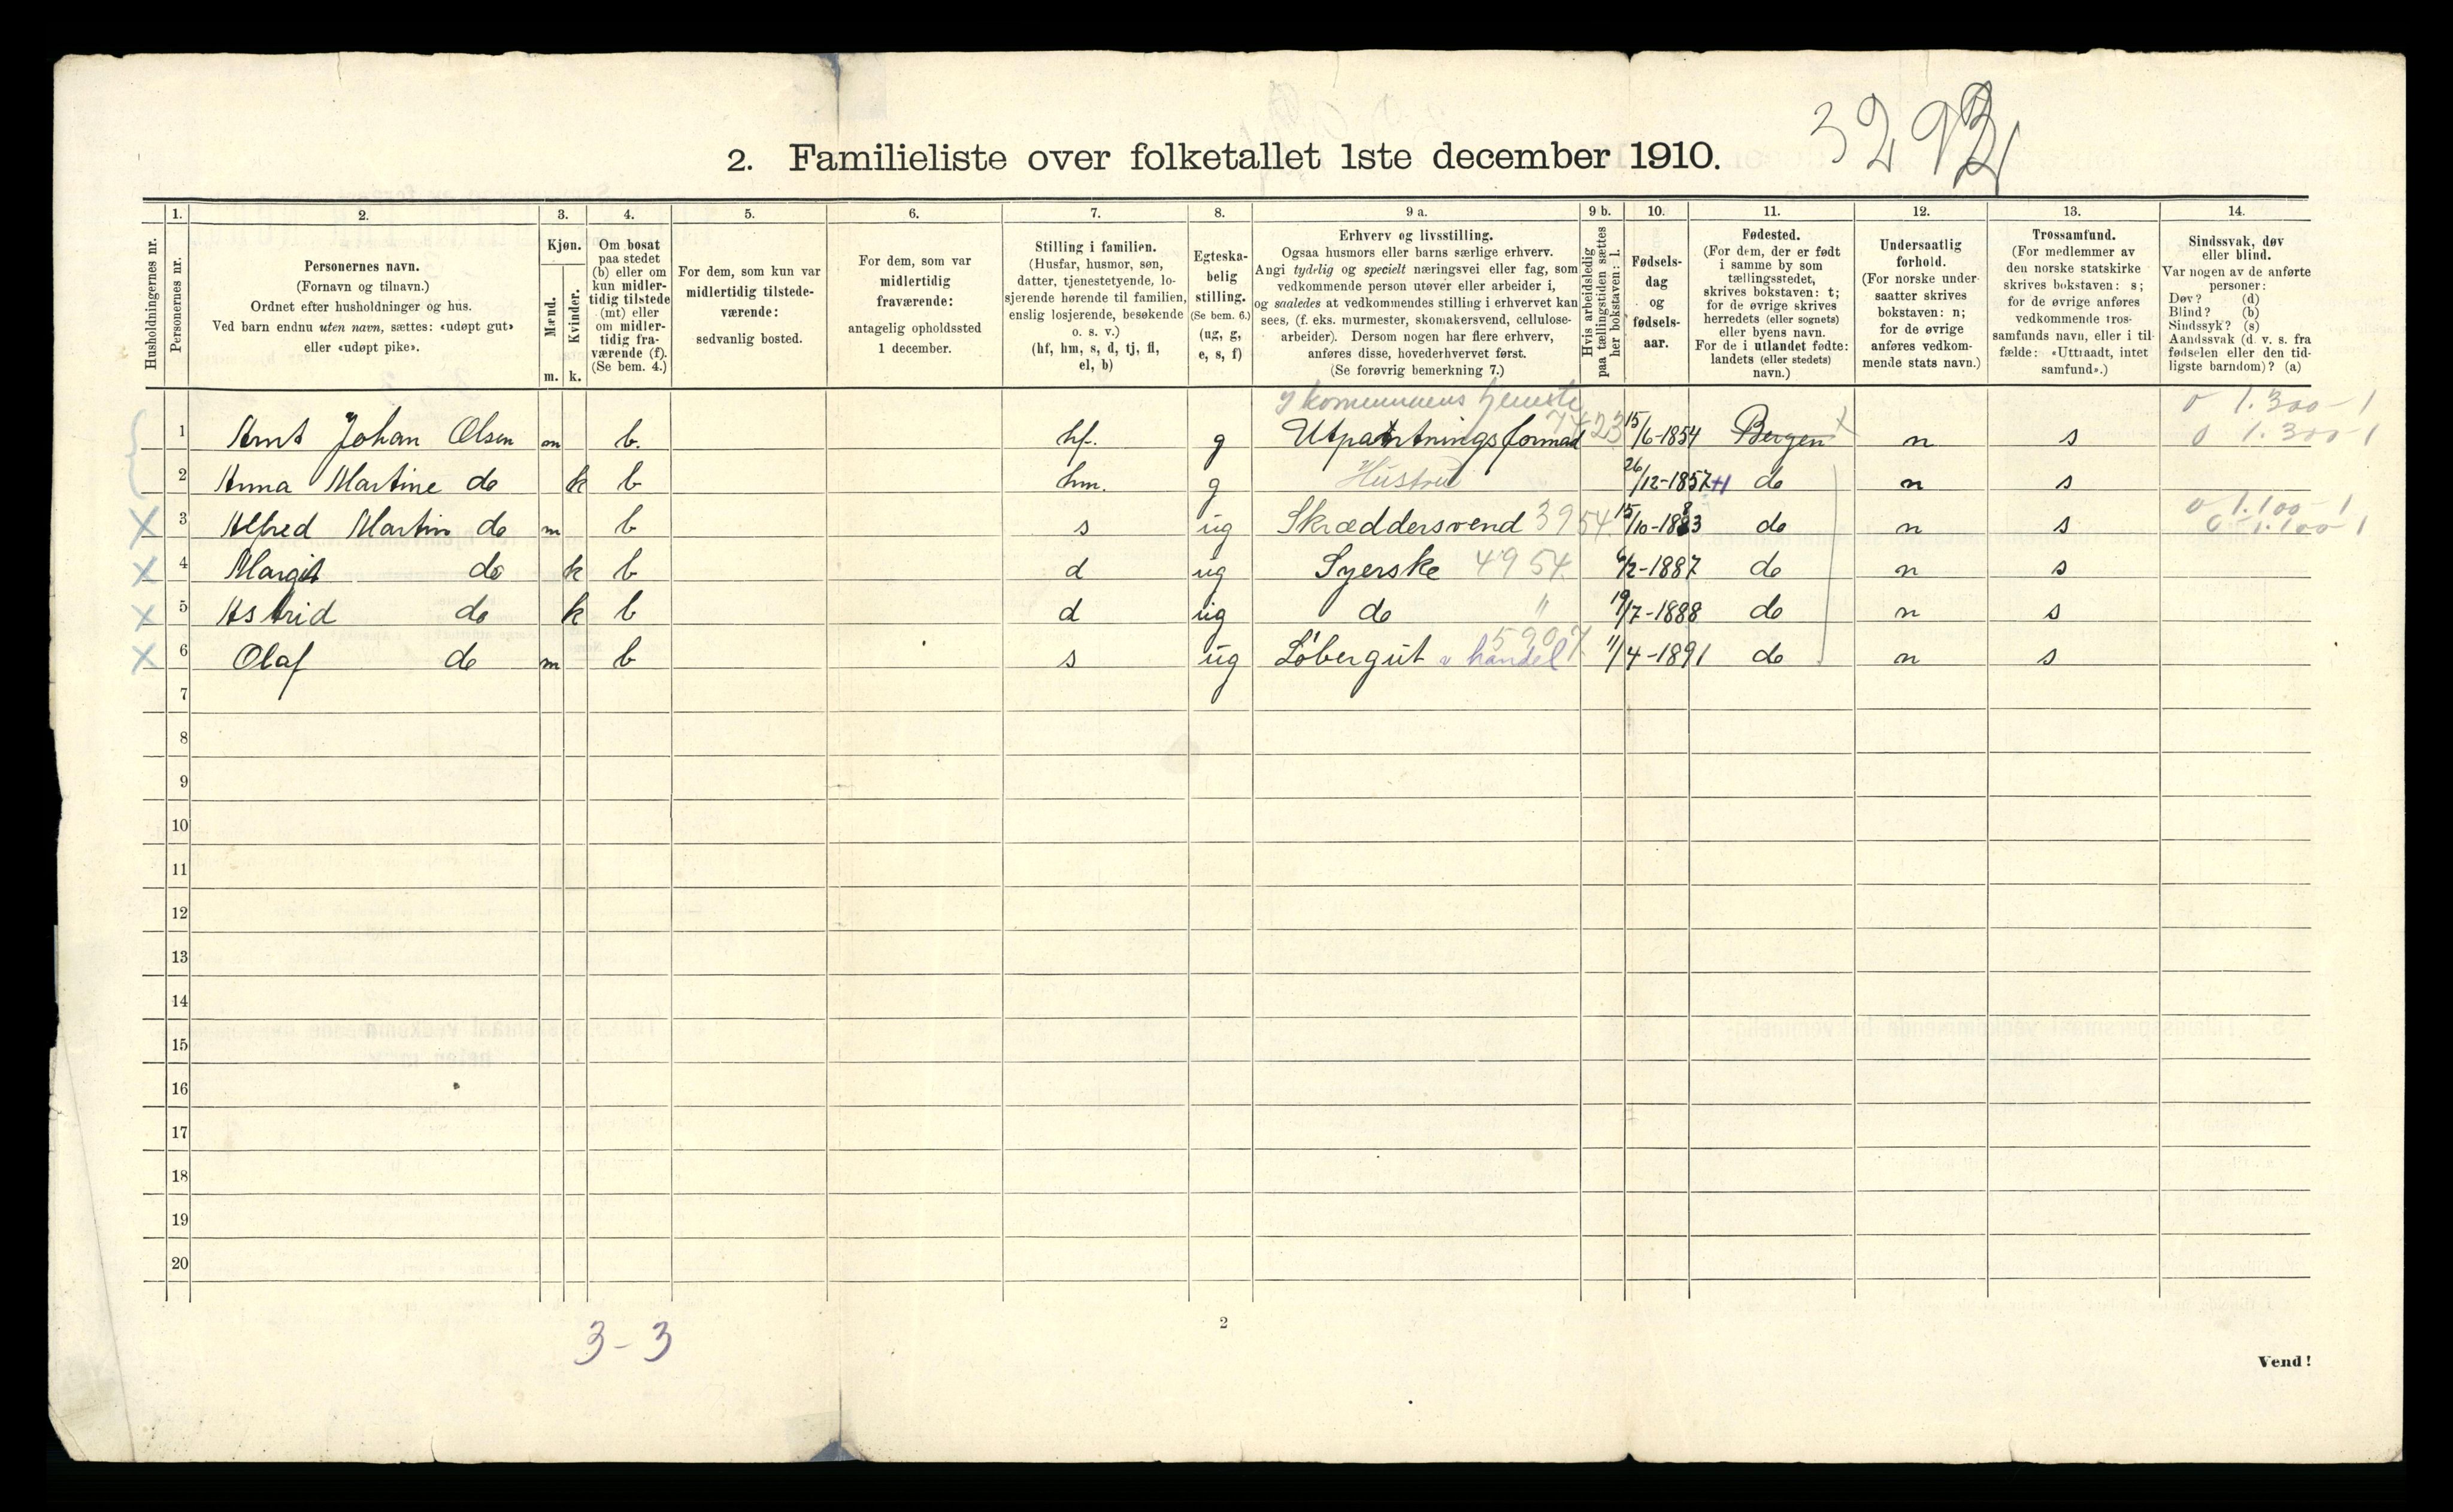 3292
2. Familieliste over folketallet 1ste december 1910.
1. 2. 3. 4. 5. 6. 7. 8. 9 a. 9 b. 10. 11. 12. 13. 14.
Husholdningernes nr.
Personernes nr.
Personernes navn.
(Fornavn og tilnavn.)
Ordnet efter husholdninger og hus.
Ved barn endnu uten navn, sættes: «udøpt gut»
eller «udøpt pike».
Kjøn.
Mænd.
m.
Kvinder.
k.
Om bosat
paa stedet
(b) eller om
kun midler-
tidig tilstede
(mt) eller
om midler-
tidig fra-
værende (f).
(Se bem. 4.)
For dem, som kun var
midlertidig tilstede-
værende:
sedvanlig bosted.
For dem, som var
midlertidig
fraværende:
antagelig opholdssted
1 december.
Stilling i familien.
(Husfar, husmor, søn,
datter, tjenestetyende, lo-
sjerende hørende til familien,
enslig losjerende, besøkende
o. s. v.)
(hf, hm, s, d, tj, fl,
el, b)
Egteska-
belig
stilling.
(Se bem. 6.)
(ug, g,
e, s, f)
Erhverv og livsstilling.
Ogsaa husmors eller barns særlige erhverv.
Angi tydelig og specielt næringsvei eller fag, som
vedkommende person utøver eller arbeider i,
og saaledes at vedkommendes stilling i erhvervet kan
sees, (f. eks. murmester, skomakersvend, cellulose-
arbeider). Dersom nogen har flere erhverv,
anføres disse, hovederhvervet først.
(Se forøvrig bemerkning 7.)
Hvis arbeidsledig
paa tællingstiden sættes
her bokstaven: l.
Fødsels-
dag
og
fødsels-
aar.
Fødested.
(For dem, der er født
i samme by som
tællingsstedet,
skrives bokstaven: t;
for de øvrige skrives
herredets (eller sognets)
eller byens navn.
For de i utlandet fødte:
landets (eller stedets)
navn.)
Undersaatlig
forhold.
(For norske under-
saatter skrives
bokstaven: n;
for de øvrige
anføres vedkom-
mende stats navn.)
Trossamfund.
(For medlemmer av
den norske statskirke
skrives bokstaven: s;
for de øvrige anføres
vedkommende tros-
samfunds navn, eller i til-
fælde: «Uttraadt, intet
samfund».)
Sindssvak, døv
eller blind.
Var nogen av de anførte
personer:
Døv? (d)
Blind? (b)
Sindssyk? (s)
Aandssvak (d. v. s. fra
fødselen eller den tid-
ligste barndom)? (a)
I kommunens tjeneste 0 1.300-1
1 Arnt Johan Olsen m b. hf. g Utpantningsformand 7423 15/6-1854 Bergen n s 0 1.300-1
2 Anna Martine do k b hm. g Hustru 26/12-1857 +1 do n s
0 1.100-1
X 3 Alfred Martin do m b s ug Skræddersvend 3954 15/10-1883 do n s 0 1.100-1
X 4 Margit do k b d ug Syerske 4954 6/2-1887 do n s
X 5 Astrid do k b d ug do " 19/7-1888 do n s
X 6 Olaf do m b s ug Løbergut v handel 5907 11/4-1891 do n s
7
8
9
10
11
12
13
14
15
16
17
18
19
20
3-3
2
Vend!